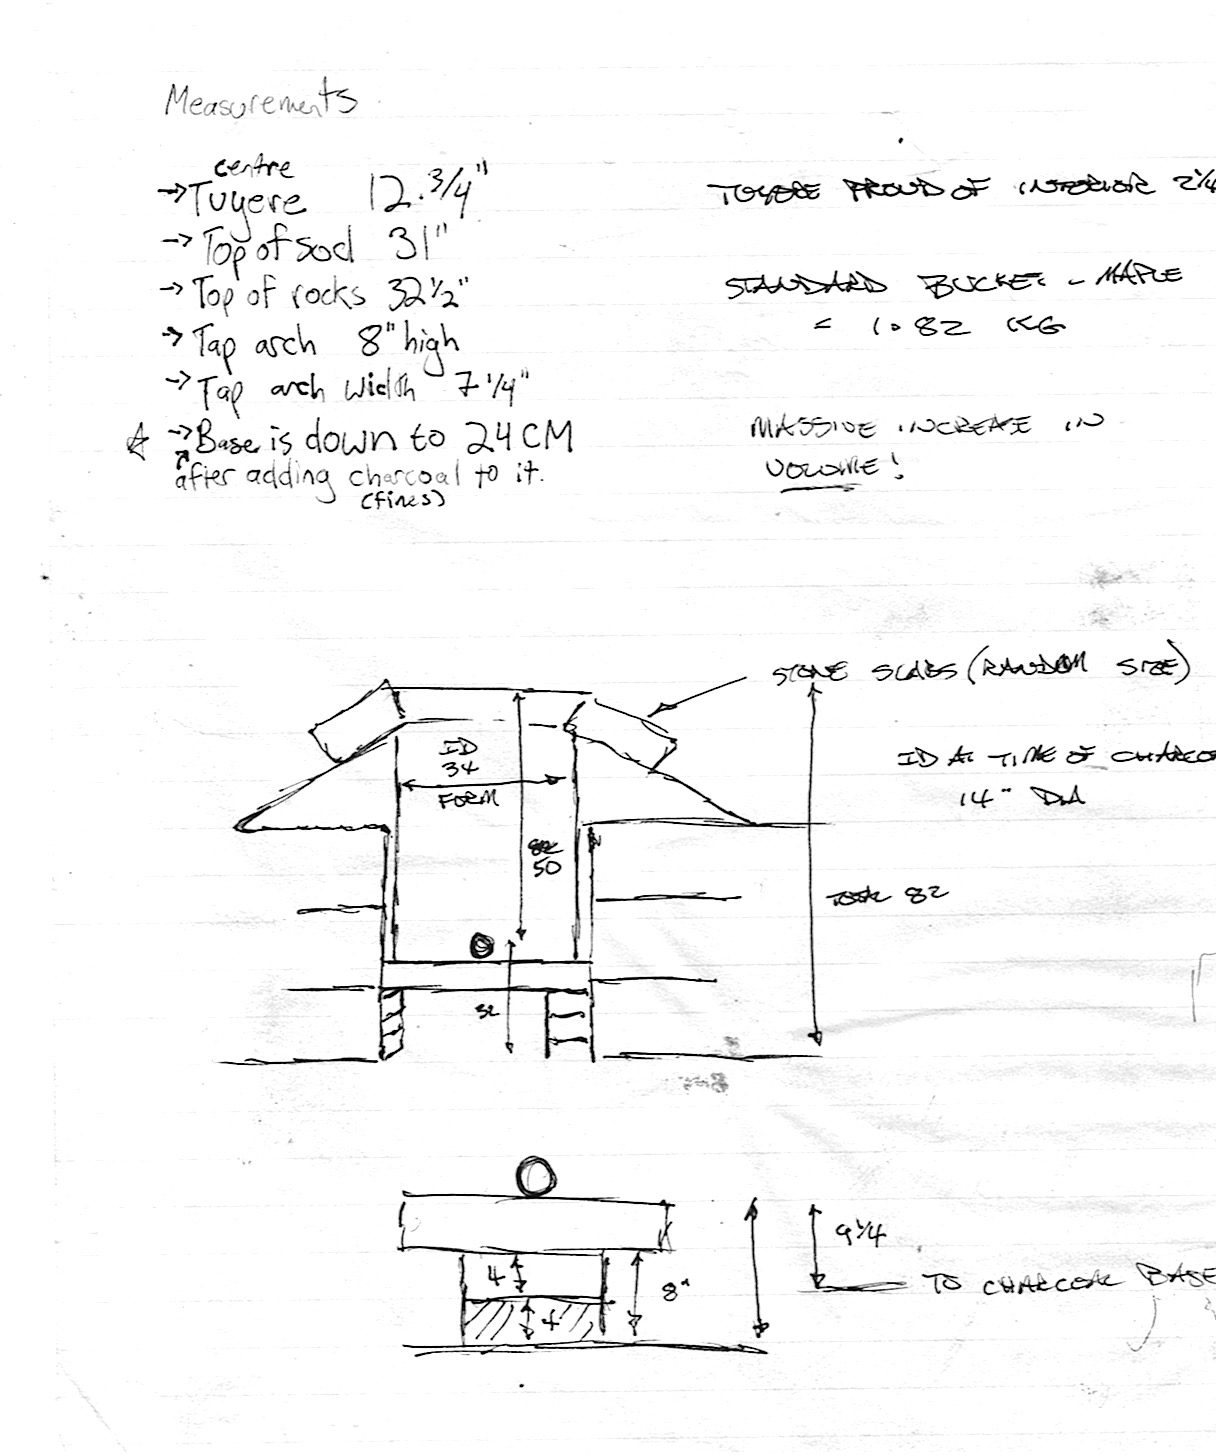 Measurements
centre
→ Tuyere 12.3/4"
→ Top of sod 31"
→ Top of rocks 32 1/2"
→ Tap arch 8" high
→ Tap arch width 7 1/4"
☆ → Base is down to 24CM
after adding charcoal to it.
(fines)
TUYERE PROUD OF INTERIOR 2 1/4
STANDARD BUCKET - MAPLE
= 1.82 KG
MASSIVE INCREASE IN
VOLUME!
STONE SLABS (RANDOM SIZE)
ID
34
FORM
50
32
ID AT TIME OF
14" DIA
82
9 1/4
4
8"
4
TO CHARCOAL BASE